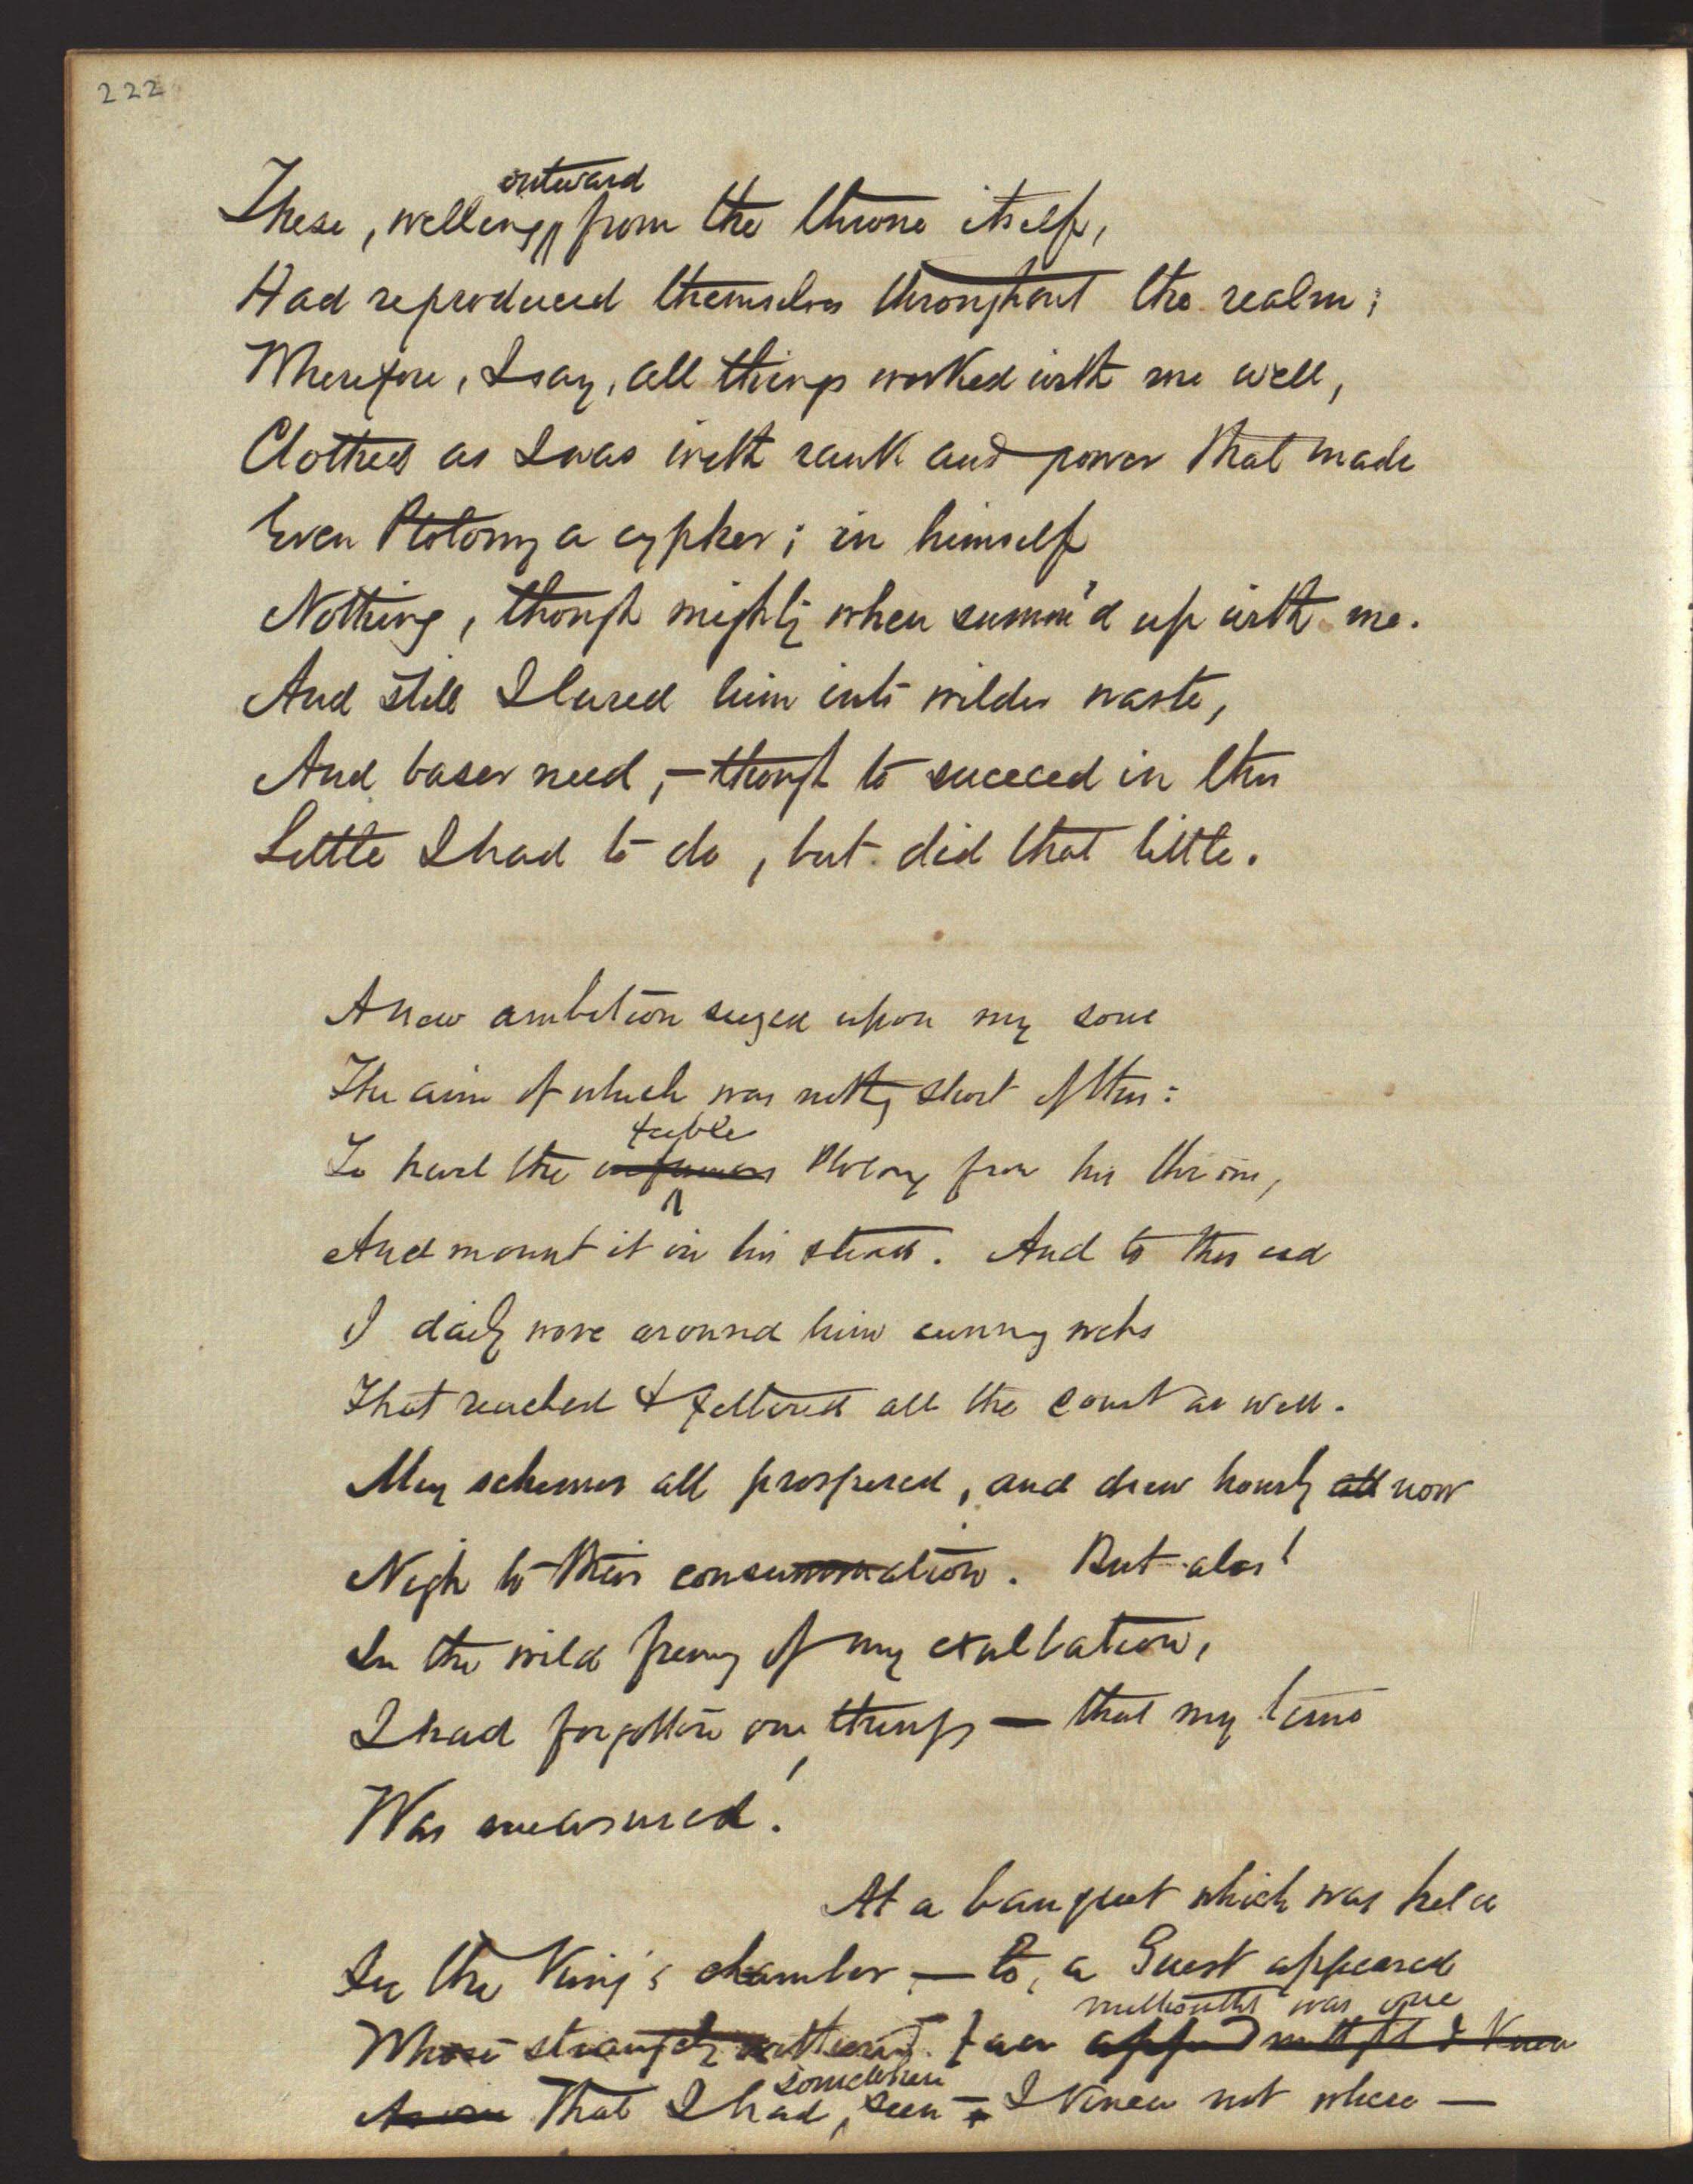 222
outward
These, welling from the throne itself,
Had reproduced themselves throughout the realm;
Wherefore, I say, all things worked with me well,
Clothed as I was with rank and power that made
Even Ptolomy a cypher; in himself
Nothing, though mighty when summ'd up with me.
And still I lured him into wilder waste,
And baser need,—though to succeed in this
Little I had to do, but did that little.
A new ambition seized upon my soul
The aim of which was nothing short of this:
feeble
To hurl the infamous Ptolomy from his throne,
And mount it in his stead. And to this end
I daily wove around him cunning webs
That reached & fettered all the court as well.
My schemes all prospered, and drew hourly all now
Nigh to their consummation. But alas!
In the wild frenzy of my exultation,
I had forgotten one thing, — that my time
Was measured!
At a banquet which was held
In the King's chamber,— lo, a Guest appeared
methought was one
Whose strangely face & knew
somewhere
That I had seen — I knew not where —